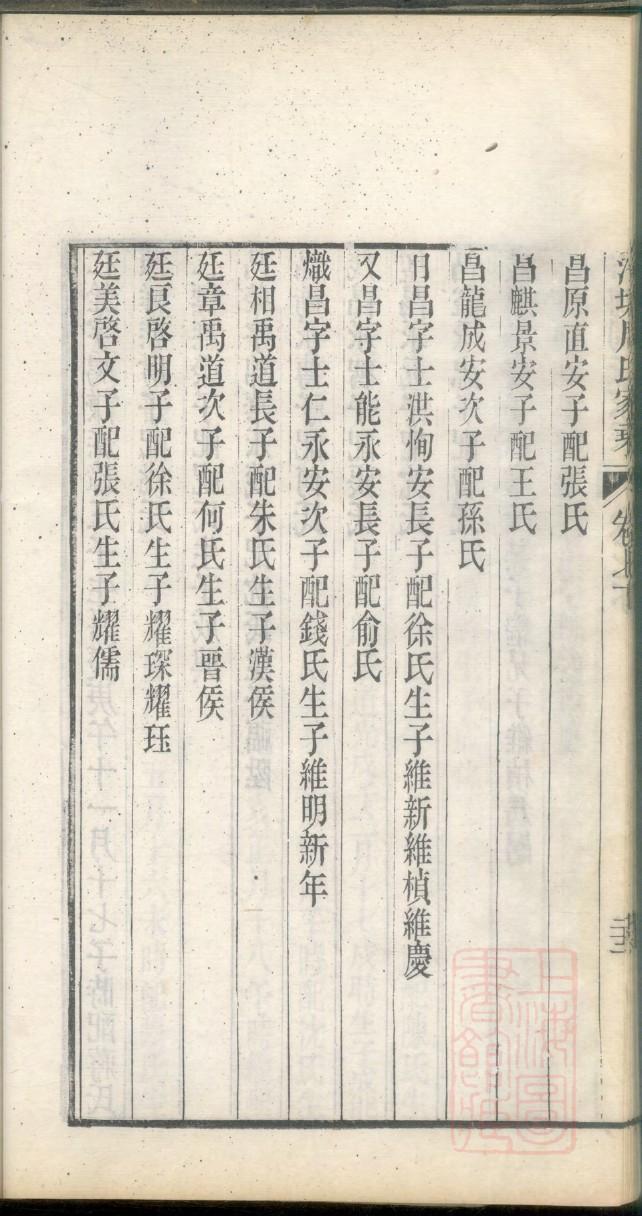 周氏家乘
昌原直安子配張氏
昌麒景安子配王氏
昌龍成安次子配孫氏
日昌字士洪恂安長子配徐氏生子維新維楨維慶
又昌字士能永安長子配俞氏
熾昌字士仁永安次子配錢氏生子維明新年
廷相禹道長子配朱氏生子漢侯
廷章禹道次子配何氏生子晋侯
廷良啓明子配徐氏生子耀琛耀珏
廷美啓文子配張氏生子耀儒
上海圖書館藏